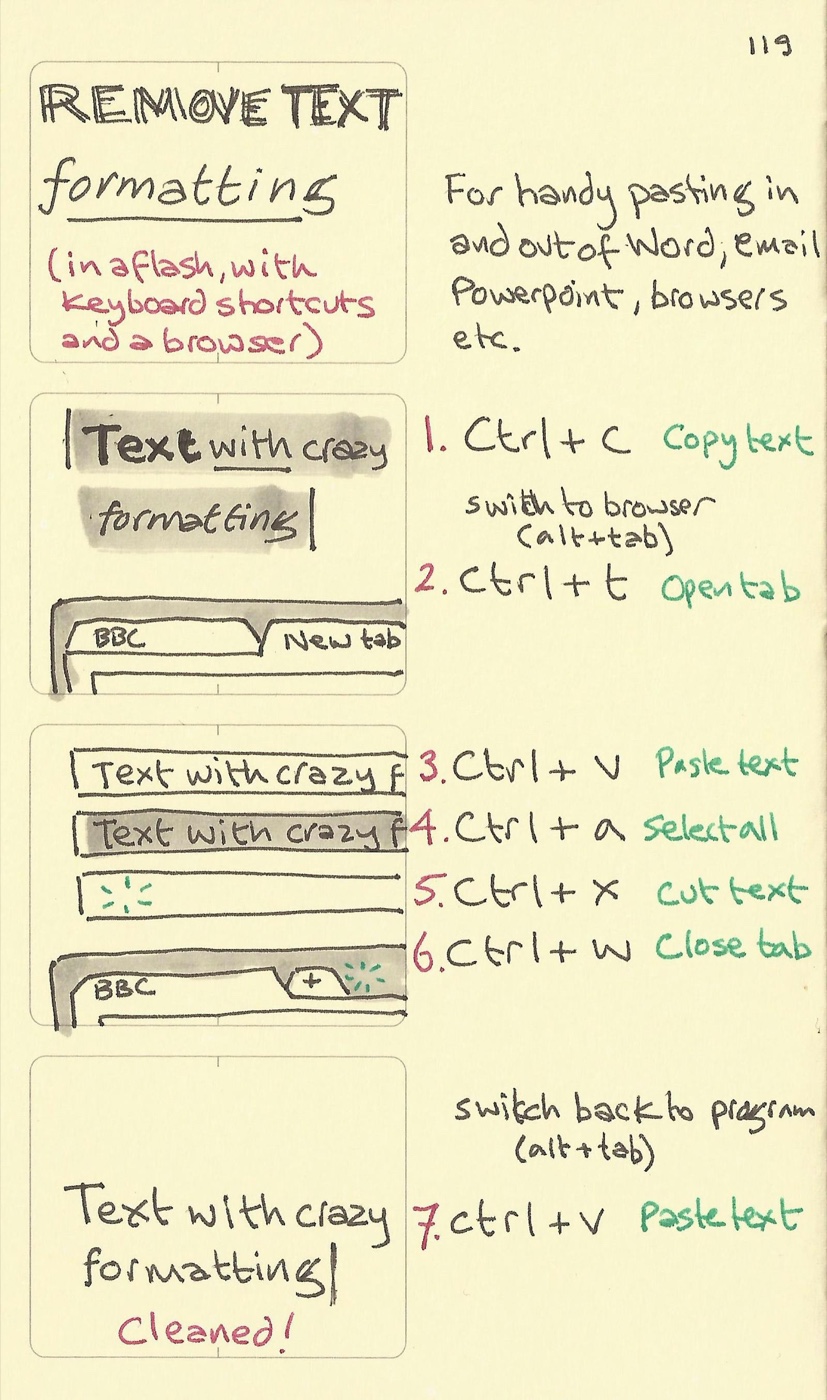 119
REMOVE TEXT
formatting
(in a flash, with
keyboard shortcuts
and a browser)
For handy pasting in
and out of Word, email
Powerpoint, browsers
etc.
Text with crazy
formatting
BBC
New tab
1. Ctrl + C Copy text
swith to browser
(alt+tab)
2. Ctrl + t Open tab
Text with crazy f
Text with crazy f
BBC +
3. Ctrl + v Paste text
4. Ctrl + a Select all
5. Ctrl + x Cut text
6. Ctrl + w Close tab
Text with crazy
formatting
Cleaned!
switch back to program
(alt+tab)
7. ctrl + v Paste text